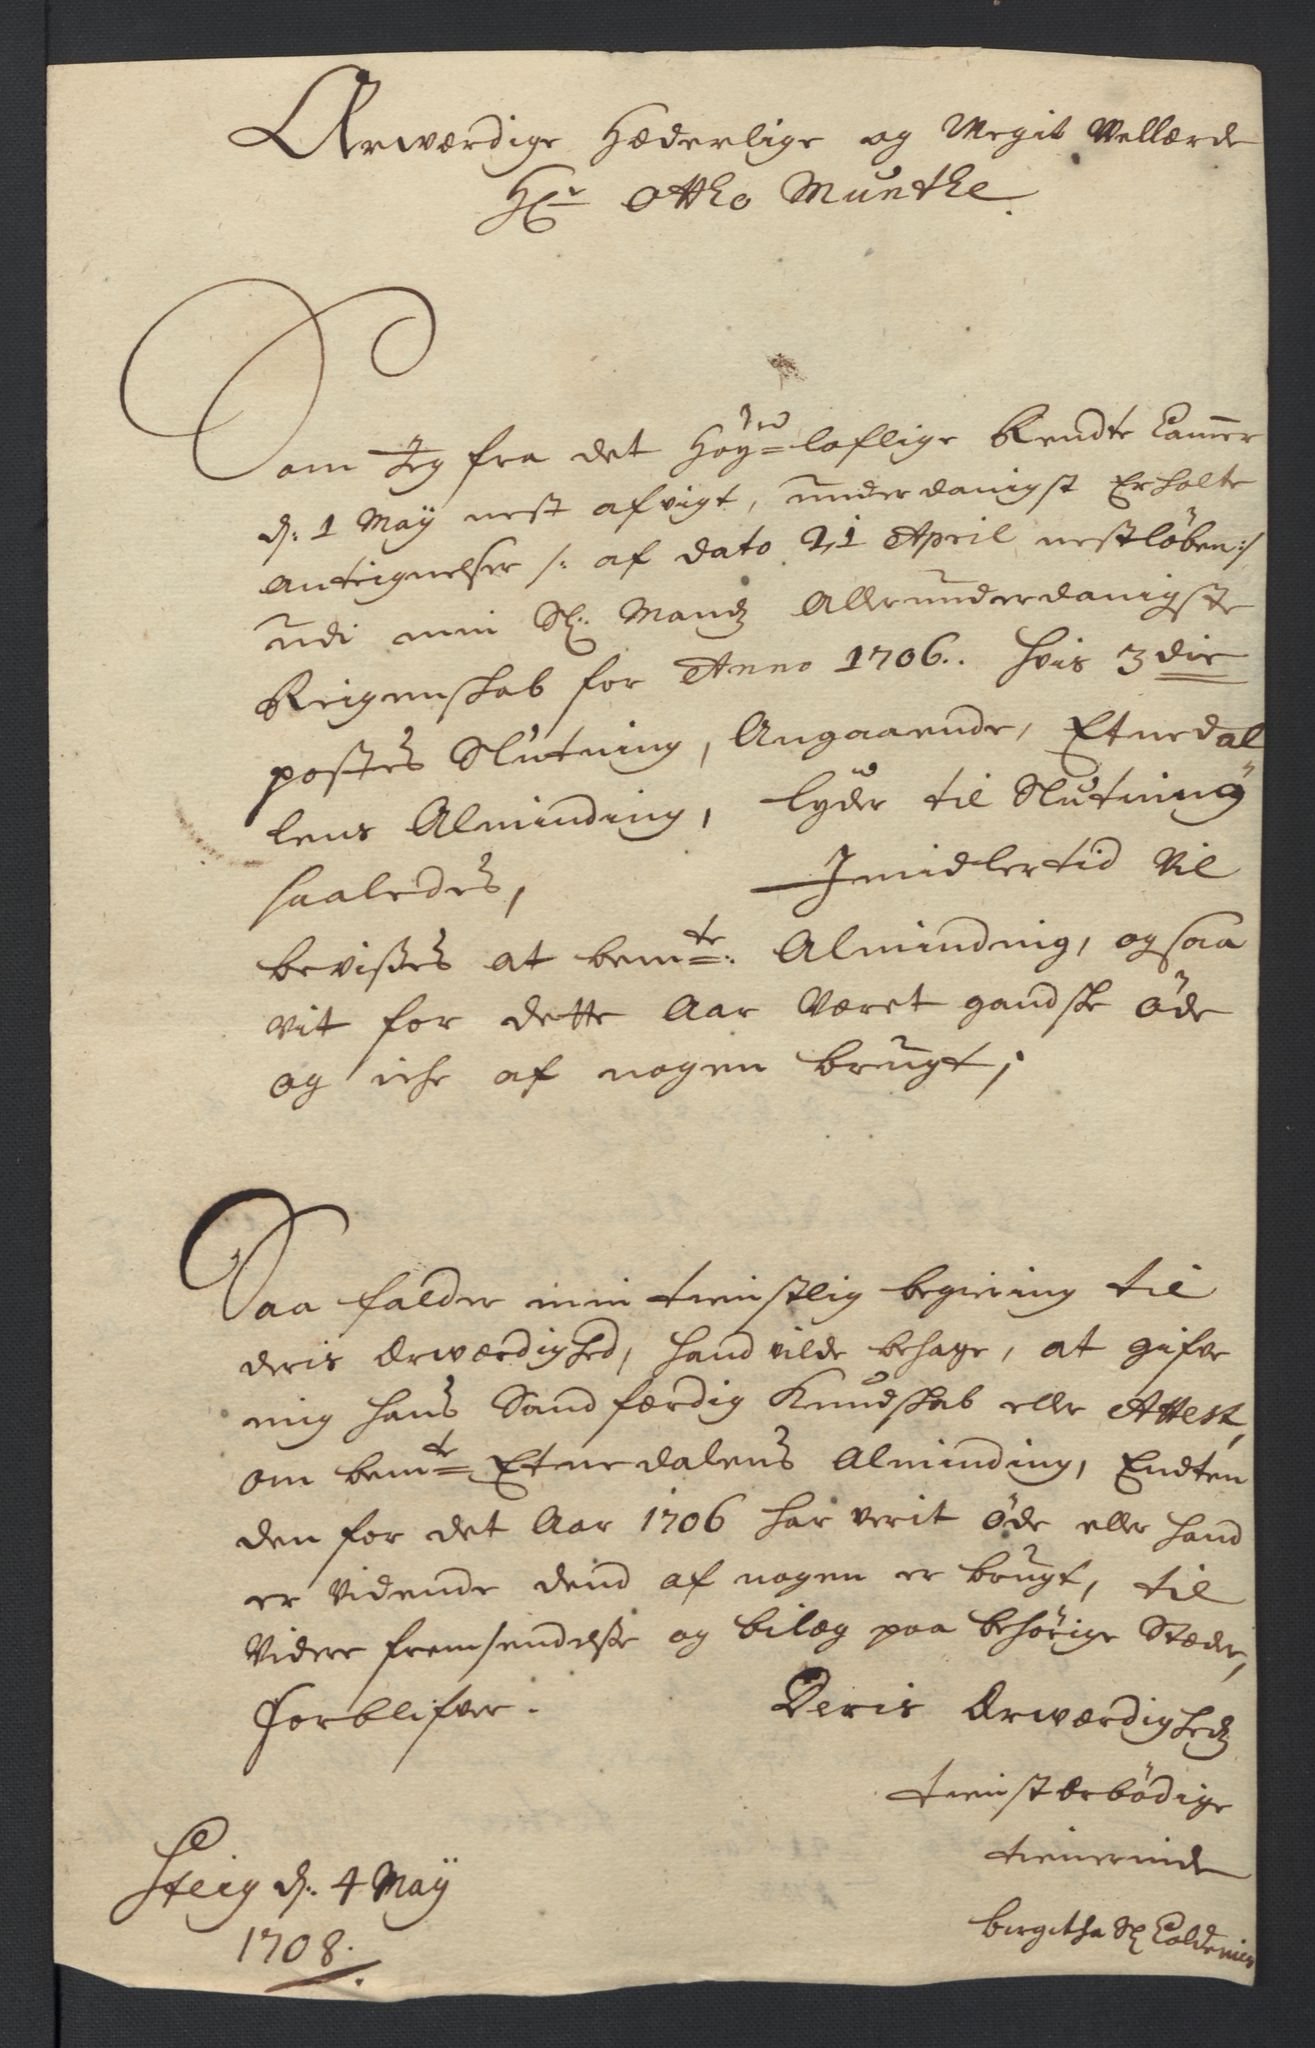 Ærværdige Hæderlige og Megit Vellærde
Hr Otto Munthe.
Som Jeg fra det Høy=loflige Rendte Cammer
d: 1 Maÿ nest afvigt, underdanigst Erholte
Anteignelser /: af dato 21 April nestløben:/
udi min Sl: Mandz Allerunderdanigste
Reigenskab for Anno 1706.. hvis 3die
postes Slutning, Angaaende, Etnedal
lens Alminding, lyder til Slutning
saaledes, Imidlertid Vil
bevisses at bemte: Alminding, ogsaa
vit for dette Aar Været gandske øde
og iche af nogen brugt;
Saa falder min tienstlig begiering til
deris Ærværdighed, hand vilde behage, at gifve
mig hans Sandfærdig Kundskab eller Attest,
om bemte Etnedalens Alminding, Endten
den for det Aar 1706 har verit øde eller hand
er Vidende dend af nogen er brugt, til
Videre fremsendelse og bilag paa behörige Stæder,
forblifver. Deris Ærværdighedz
tienstærbödige
tienerinde
Steig d: 4 Maÿ
1708.
birgitha Sl Coldevies